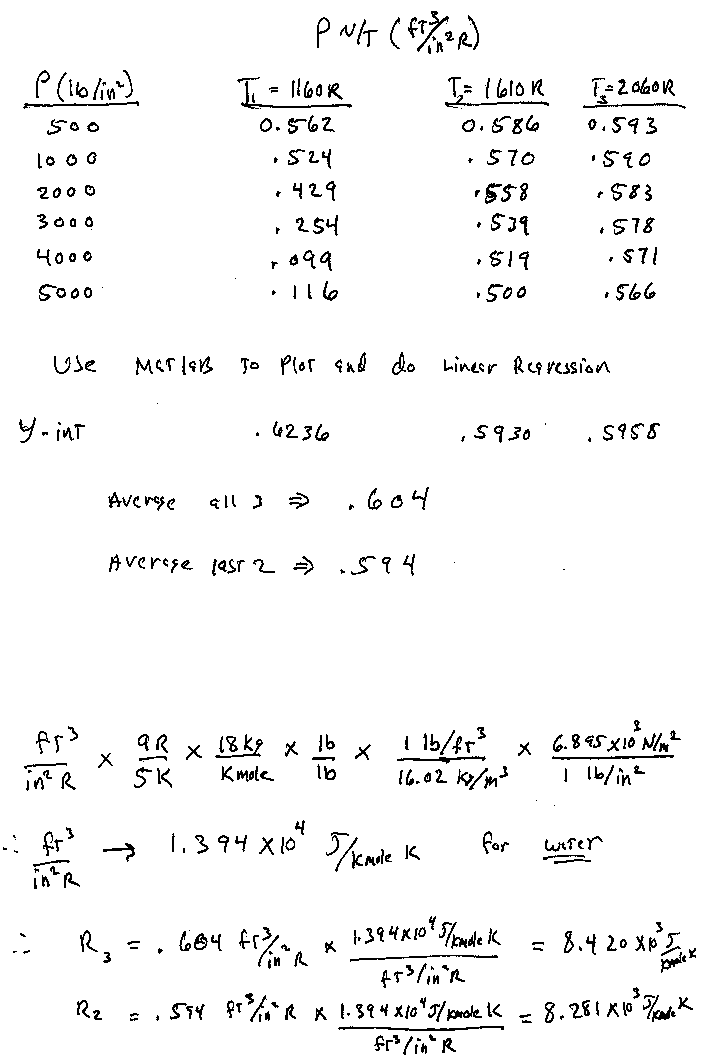 P v/T (ft³/in²R)
P (lb/in²) T₁ = 1160R T₂= 1610 R T₃=2060R
500 0.562 0.586 0.593
1000 .524 .570 .590
2000 .429 .558 .583
3000 .254 .539 .578
4000 .099 .519 .571
5000 .116 .500 .566
Use MATLAB To Plot and do Linear Regression
Y-int .6236 .5930 .5958
Average all 3 ⇒ .604
Average last 2 ⇒ .594
ft³/in² R × 9R/5K × 18 kg/Kmole × lb/lb × 1 lb/ft³/16.02 kg/m³ × 6.895 x10³ N/m²/1 lb/in²
∴ ft³/in² R → 1.394 x10⁴ J/Kmole K for water
∴ R₃ = .604 ft³/in² R × 1.394x10⁴ J/kmole K/ft³/in²R = 8.420 x10³ J/kmole K
R₂ = .594 ft³/in² R × 1.394 x10⁴ J/kmole K/ft³/in² R = 8.281 x10³ J/kmole K